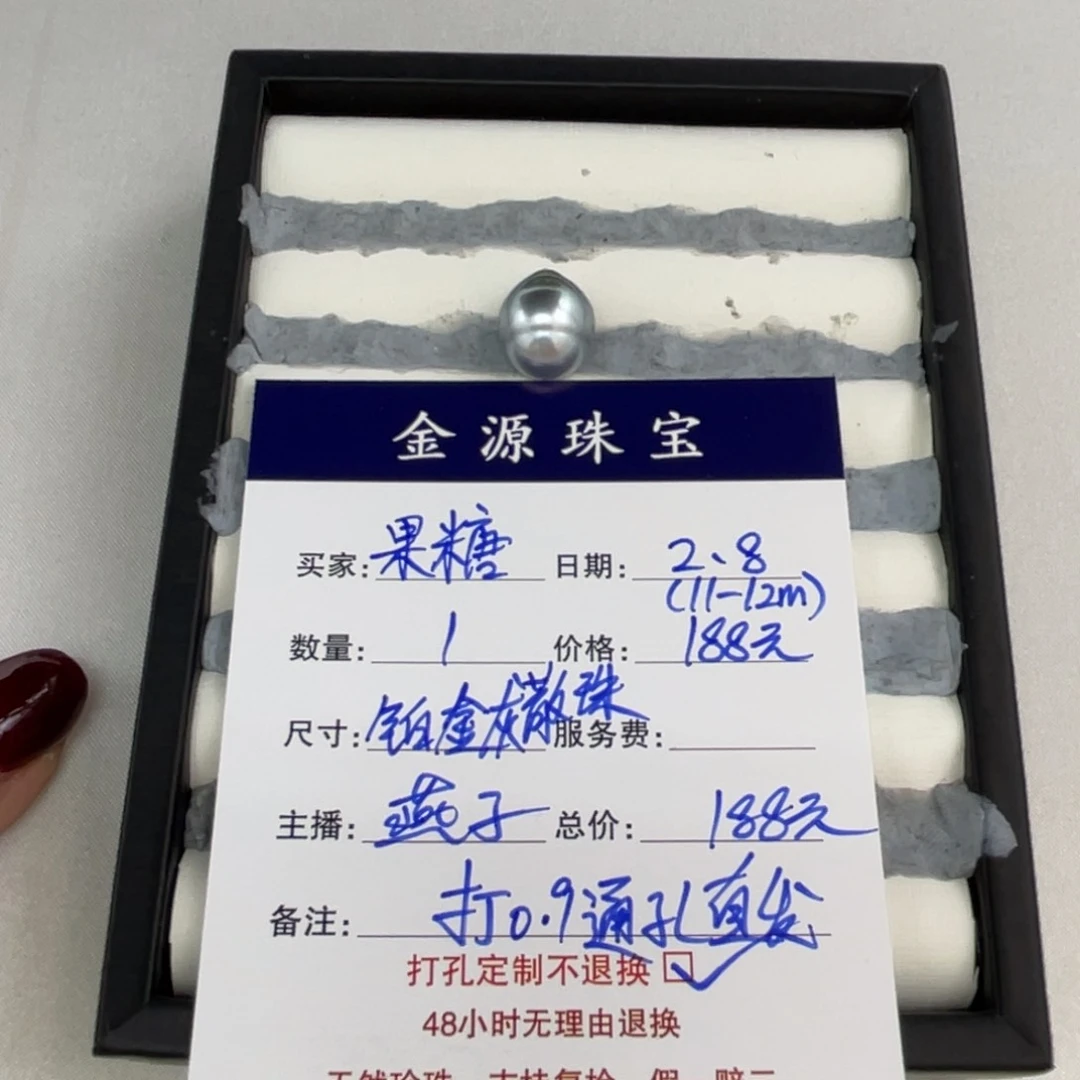 金源珠宝
买家: 果糖 日期: 2、8
(11-12m)
数量: 1 价格: 188元
尺寸: 铂金灰散珠 服务费:
主播: 燕子 总价: 188元
备注: 打0.9通孔直发
打孔定制不退换
48小时无理由退换